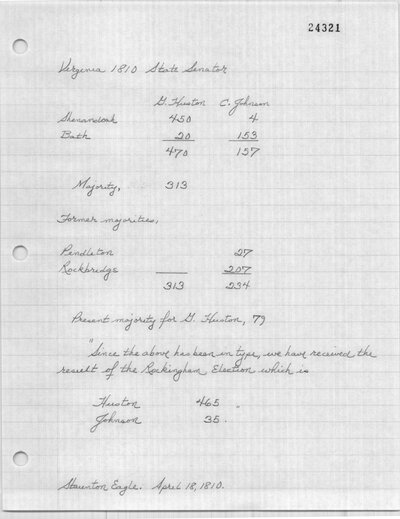 24321
Virginia 1810 State Senator
G. Huston C. Johnson
Shenandoah 450 4
Bath 20 153
470 157
Majority, 313
Former majorities,
Pendleton 27
Rockbridge 207
313 234
Present majority for G. Huston, 79
"Since the above has been in type, we have received the
result of the Rockingham Election which is
Huston 465.
Johnson 35.
Staunton Eagle. April 18, 1810.